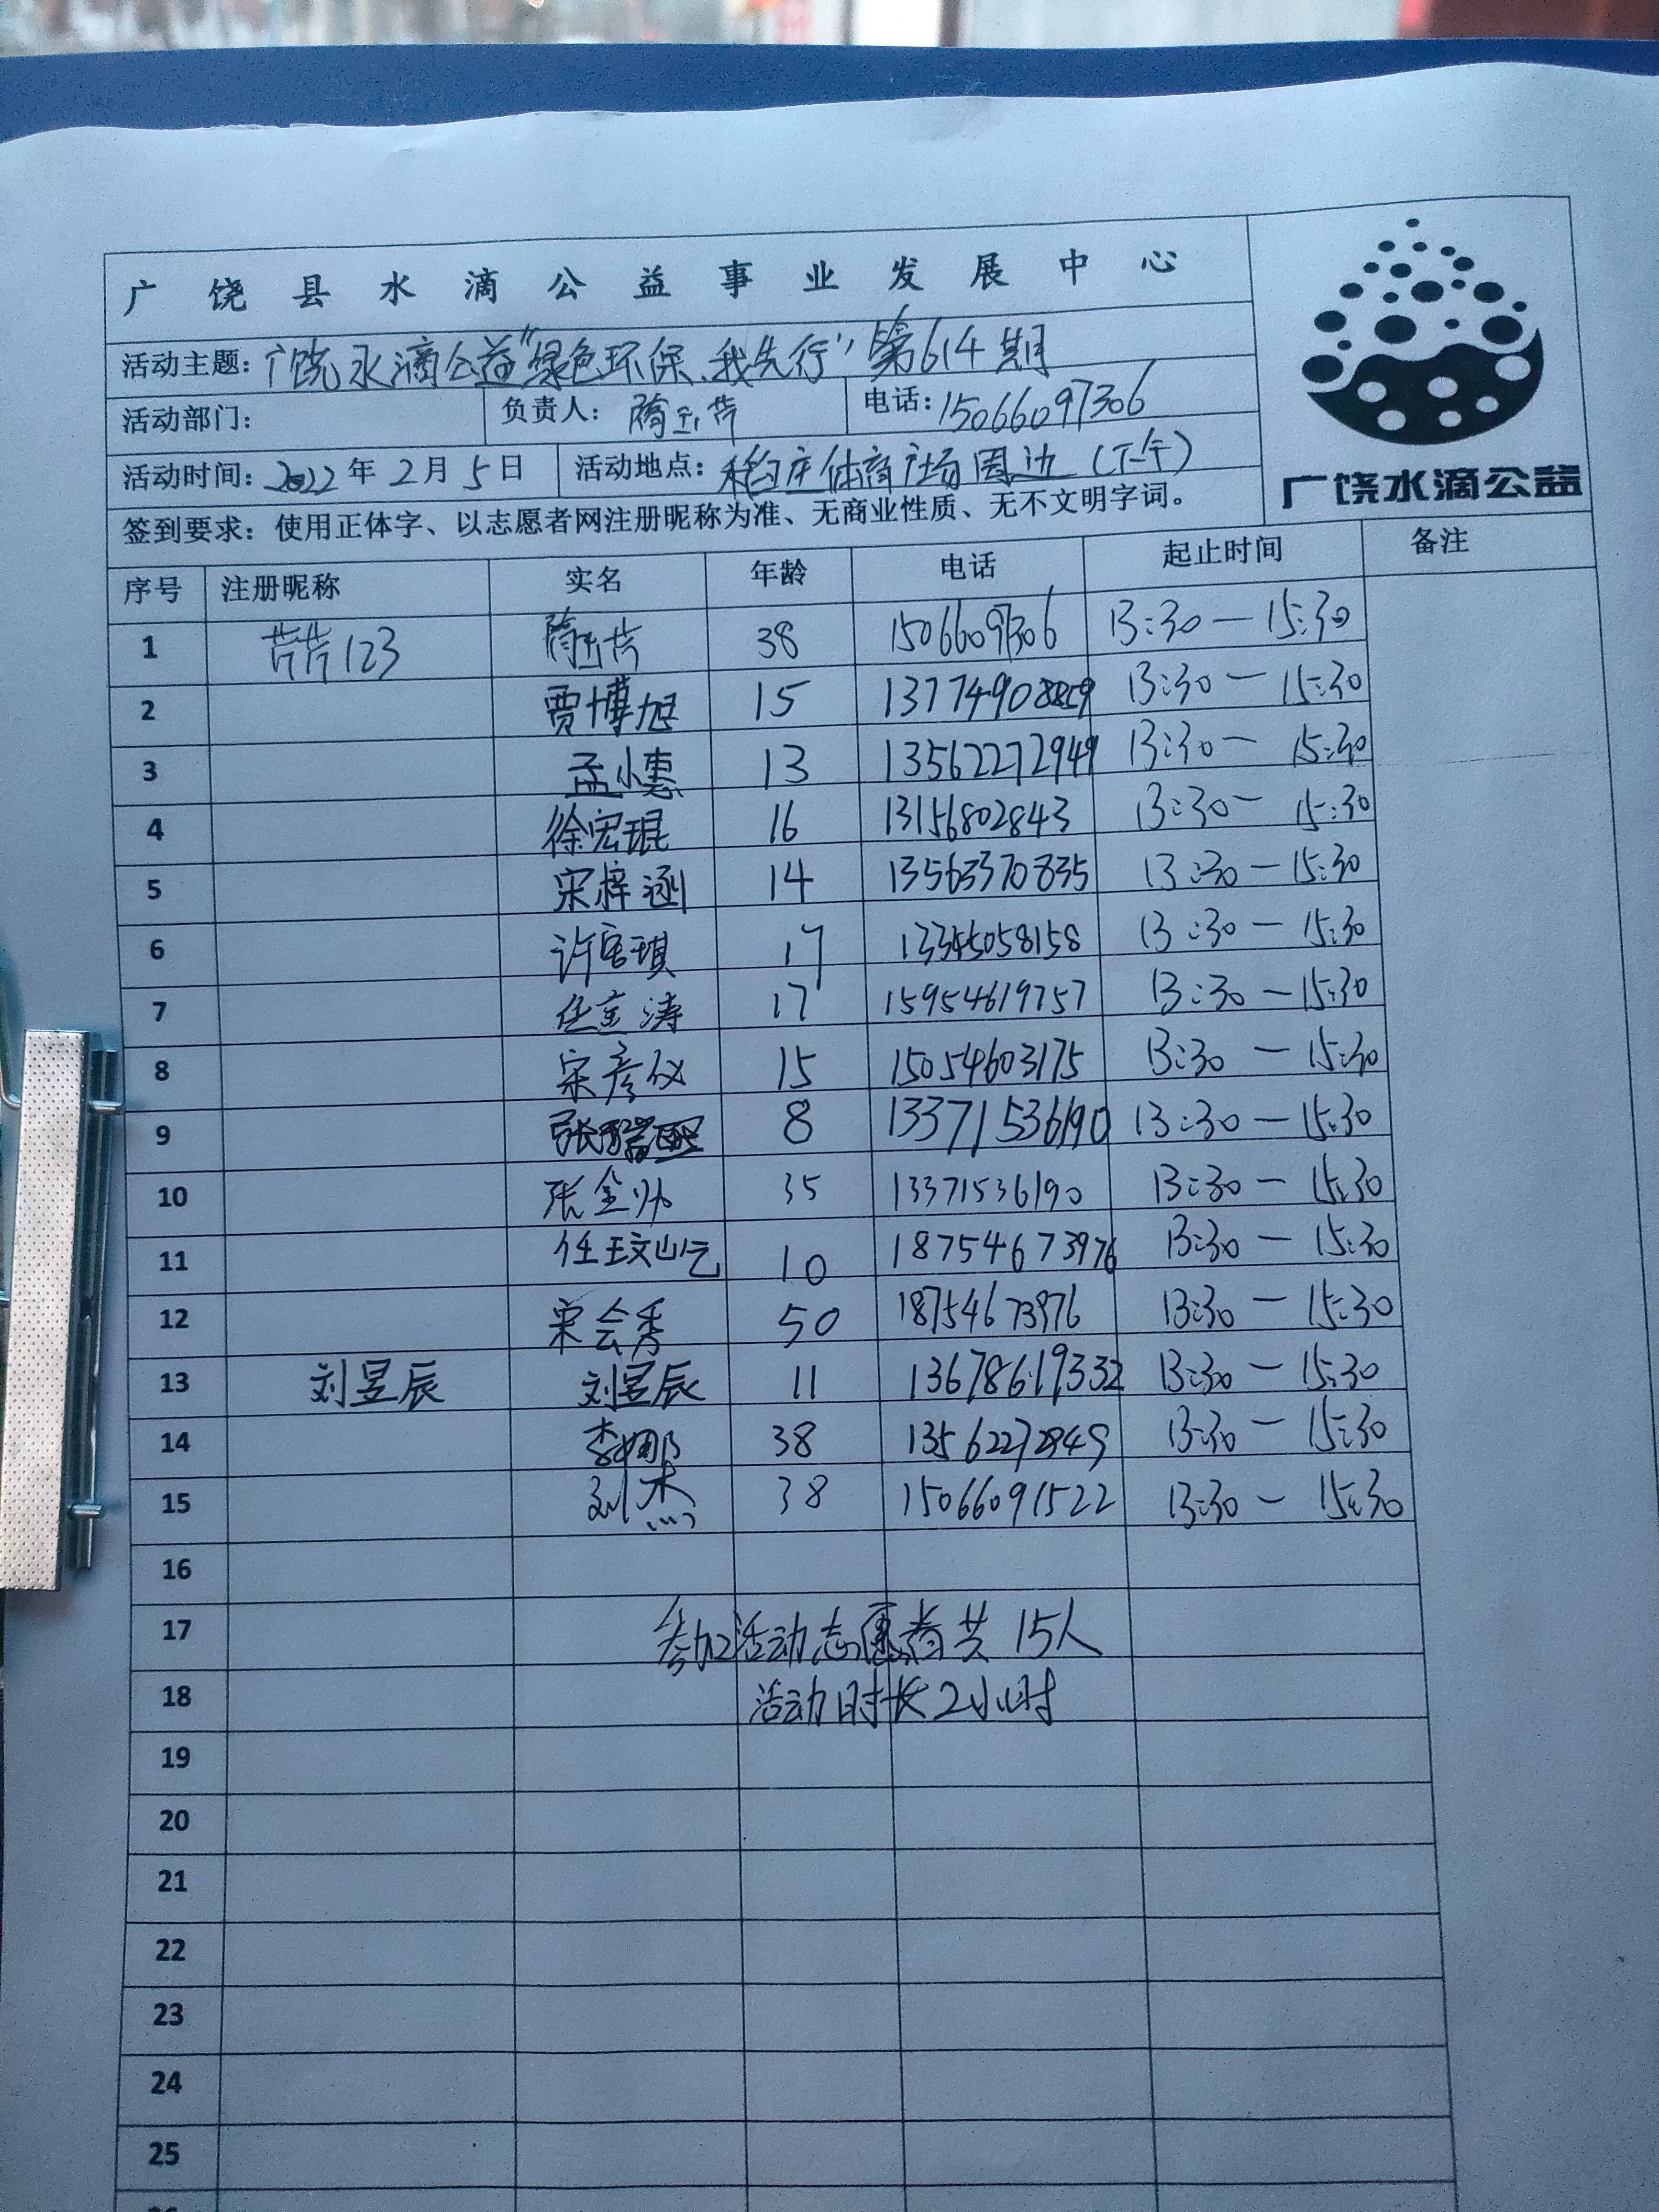 广饶县水滴公益事业发展中心
活动主题：广饶水滴公益"绿色环保、我先行"第614期
活动部门： 负责人：陶玉芹 电话：15066097306
活动时间：2022年2月5日 活动地点：稻庄体育广场周边（下午）
广饶水滴公益
签到要求：使用正体字、以志愿者网注册昵称为准、无商业性质、无不文明字词。
序号 注册昵称 实名 年龄 电话 起止时间 备注
1 芹芹123 陶玉芹 38 15066097306 13:30—15:30
2 贾博旭 15 13:30—15:30
3 孟小惠 13 13562272949 13:30—15:30
4 徐宏琨 16 13156802843 13:30—15:30
5 宋梓涵 14 13563370835 13:30—15:30
6 17 13345058158 13:30—15:30
7 17 15954619757 13:30—15:30
8 宋彦仪 15 15054603175 13:30—15:30
9 张瑞熙 8 13371536190 13:30—15:30
10 张金帅 35 13371536190 13:30—15:30
11 10 18754673976 13:30—15:30
12 宋会秀 50 18754673976 13:30—15:30
13 刘昱辰 刘昱辰 11 13678619332 13:30—15:30
14 李娜 38 13562272949 13:30—15:30
15 刘杰 38 15066091522 13:30—15:30
16
17 参加活动志愿者共15人
18 活动时长2小时
19
20
21
22
23
24
25